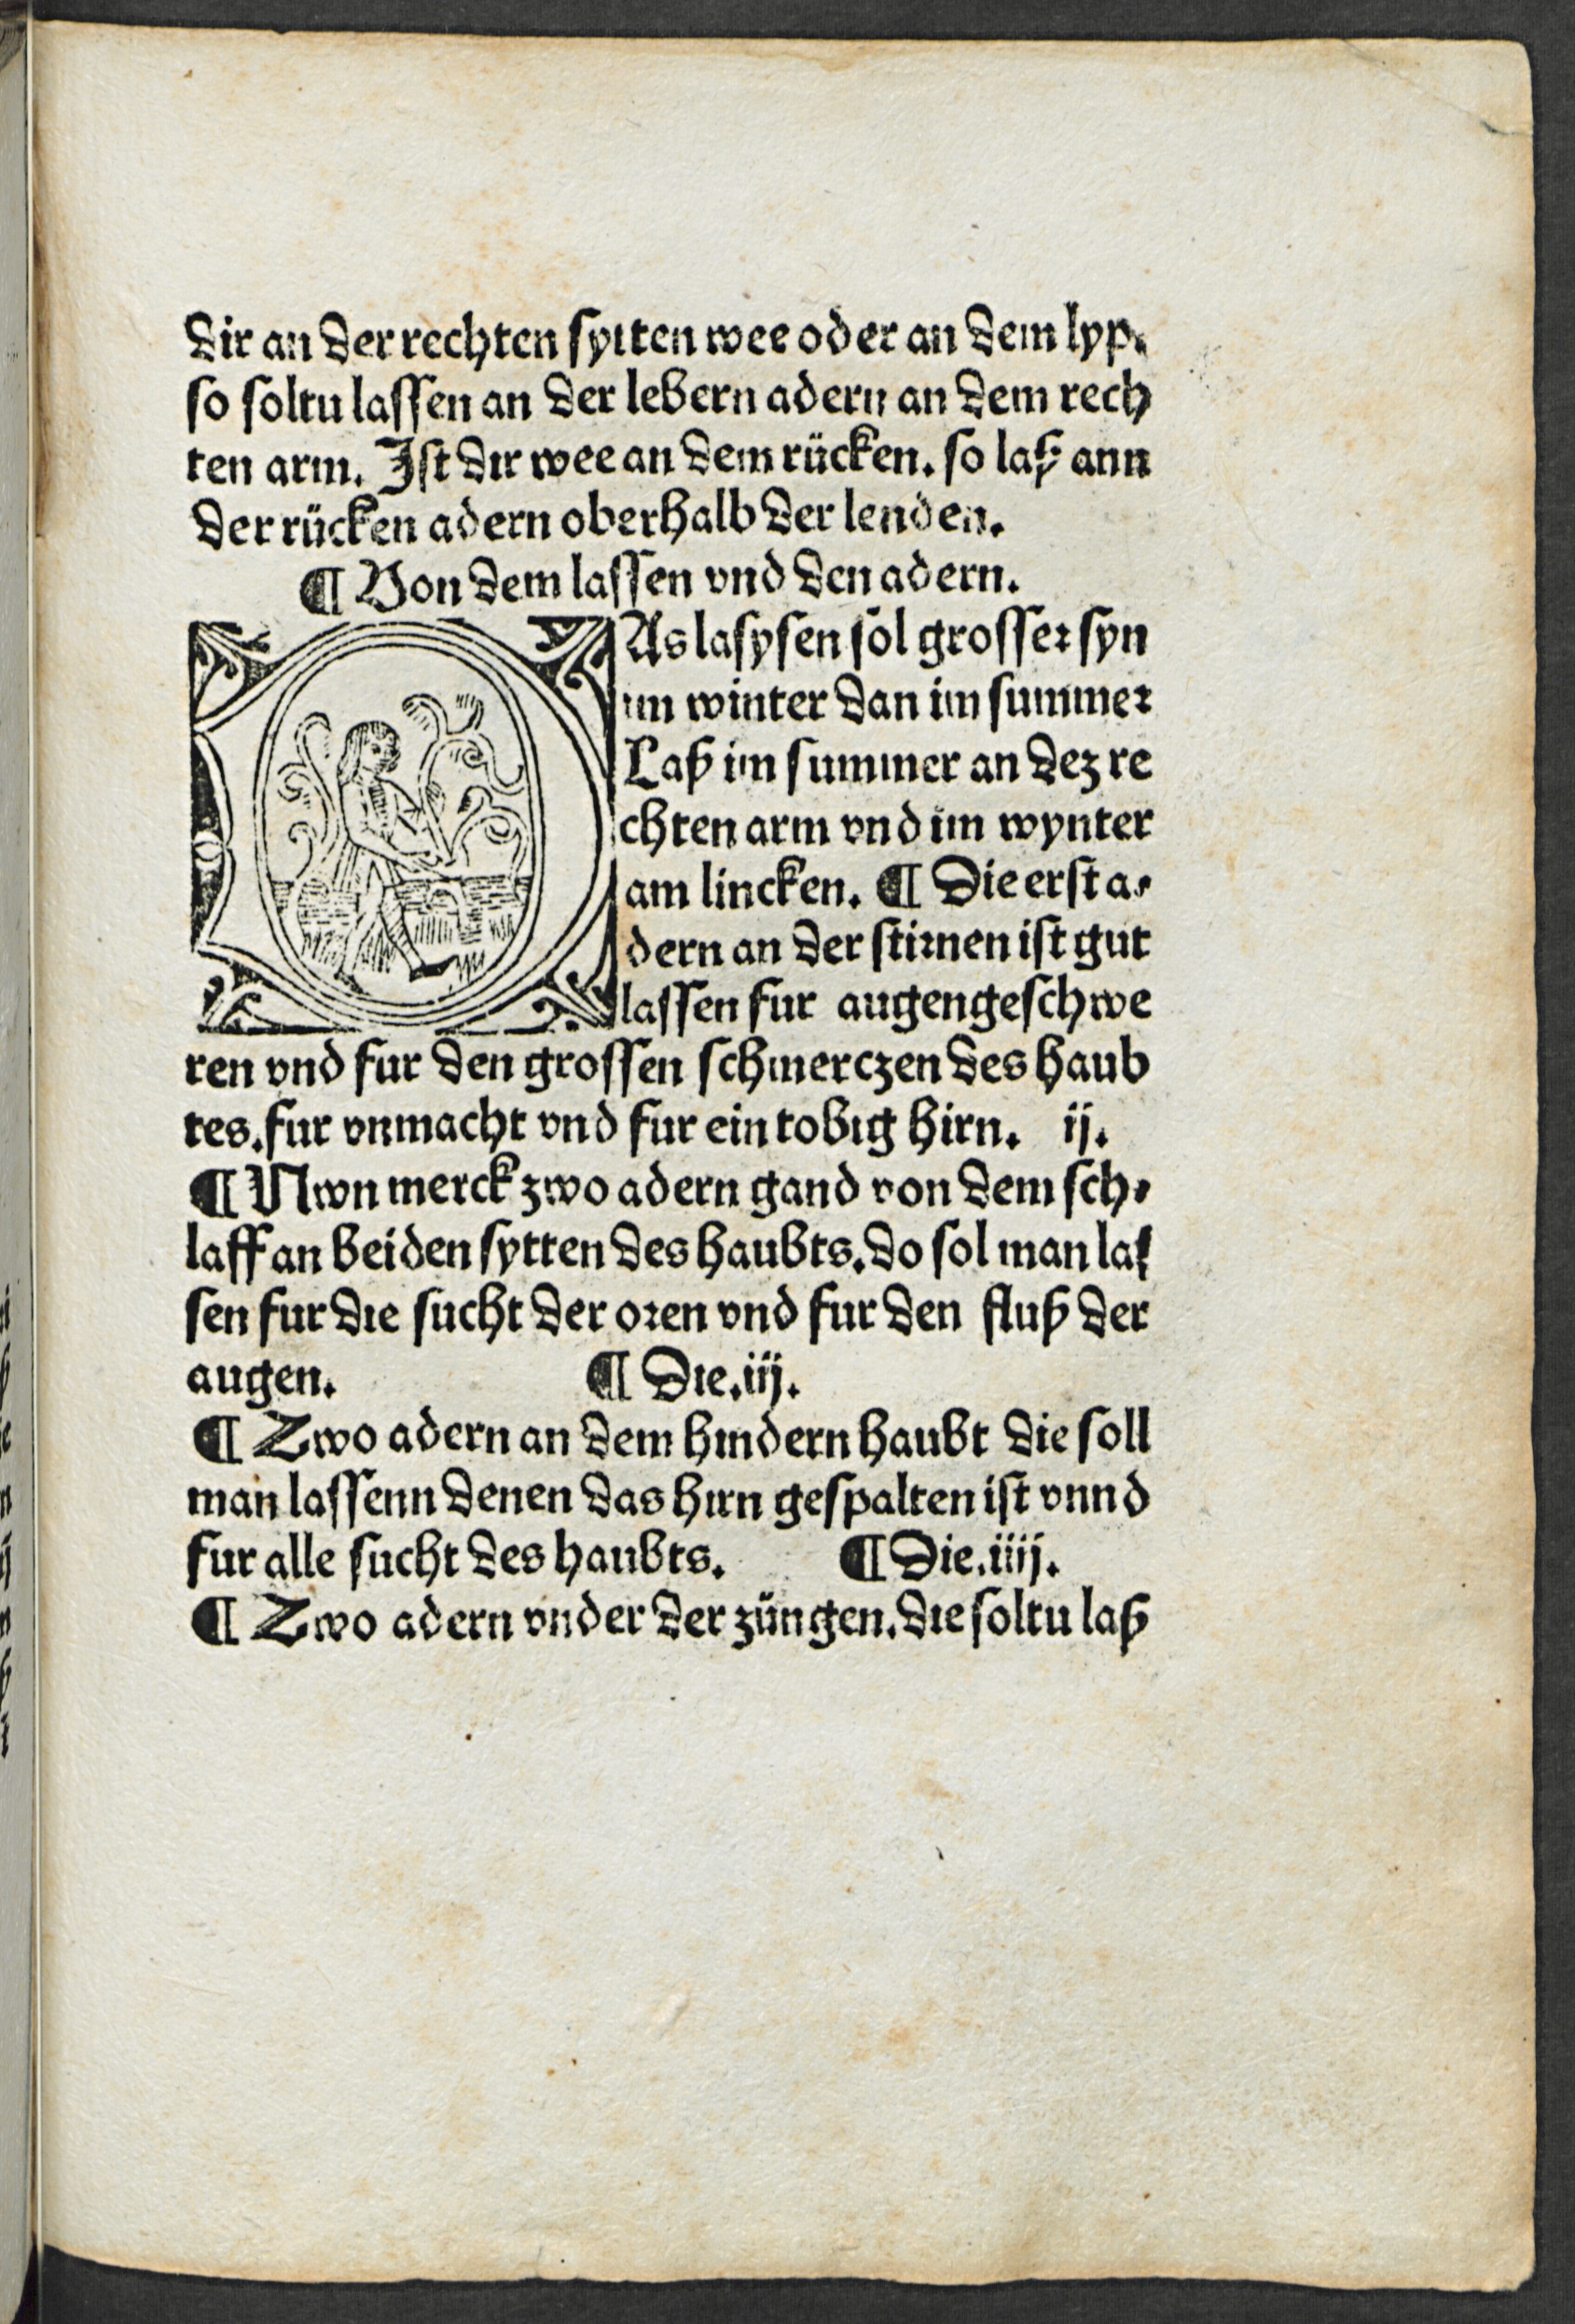 dir an der rechten sytten wee oder an dem lyp.
so soltu lassen an der lebern adern an dem rech
ten arm. Ist dir wee an dem rücken. so laß ann
der rücken adern oberhalb der lenden.
¶ Von dem lassen vnd den adern.
DAs lasysen sol grosser syn
im winter dan im summer
Laß im summer an dez re
chten arm vnd im wynter
am lincken. ¶ Die erst a⸗
dern an der stirnen ist gut
lassen fur augengeschwe
ren vnd fur den grossen schmerczen des haub
tes. fur vnmacht vnd fur ein tobig hirn. ij.
¶ Nwn merck zwo adern gand von dem sch⸗
laff an beiden sytten des haubts. do sol man las
sen fur die sucht der oren vnd fur den fluß der
augen. ¶ Die. iij.
¶ Zwo adern an dem hindern haubt die soll
man lassenn denen das hirn gespalten ist vnnd
fur alle sucht des haubts. ¶ Die. iiij.
¶ Zwo adern vnder der züngen. die soltu laß